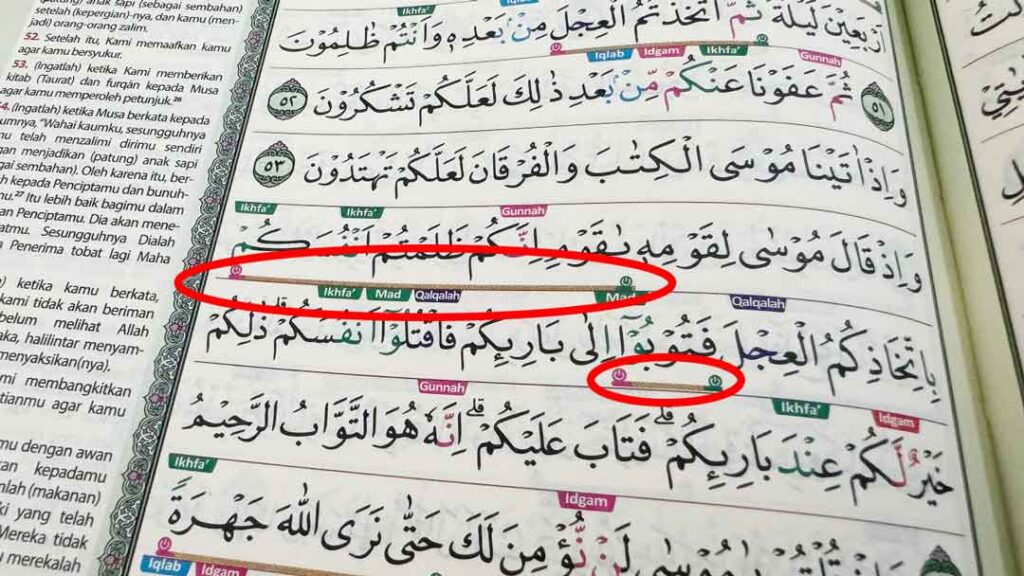 anak sapi (sebagai sembahan)
setelah (kepergian)-nya, dan kamu (men-
jadi) orang-orang zalim.
52. Setelah itu, Kami memaafkan kamu
agar kamu bersyukur.
53. (Ingatlah) ketika Kami memberikan
kitab (Taurat) dan furqān kepada Musa
agar kamu memperoleh petunjuk.²⁶
4. (Ingatlah) ketika Musa berkata kepada
umnya, "Wahai kaumku, sesungguhnya
mu telah menzalimi dirimu sendiri
an menjadikan (patung) anak sapi
gai sembahan). Oleh karena itu, ber-
h kepada Penciptamu dan bunuh-
mu.²⁷ Itu lebih baik bagimu dalam
an Penciptamu. Dia akan mene-
atmu. Sesungguhnya Dialah
a Penerima tobat lagi Maha
) ketika kamu berkata,
kami tidak akan beriman
belum melihat Allah
aka, halilintar menyam-
menyaksikan(nya).
mi membangkitkan
tianmu agar kamu
mu dengan awan
kan kepadamu
nlah (makanan)
ki yang telah
Mereka tidak
u merekalah
Ikhfa' Iqlab
اَرْبَعِيْنَ لَيْلَةً ثُمَّ اتَّخَذْتُمُ الْعِجْلَ مِنْۢ بَعْدِهٖ وَاَنْتُمْ ظٰلِمُوْنَ
Iqlab Idgam Ikhfa' Gunnah
٥١ ثُمَّ عَفَوْنَا عَنْكُمْ مِّنْۢ بَعْدِ ذٰلِكَ لَعَلَّكُمْ تَشْكُرُوْنَ ٥٢
وَاِذْ اٰتَيْنَا مُوْسَى الْكِتٰبَ وَالْفُرْقَانَ لَعَلَّكُمْ تَهْتَدُوْنَ ٥٣
Ikhfa' Ikhfa' Gunnah
وَاِذْ قَالَ مُوْسٰى لِقَوْمِهٖ يٰقَوْمِ اِنَّكُمْ ظَلَمْتُمْ اَنْفُسَكُمْ
Ikhfa' Mad Qalqalah Mad Qalqalah
بِاتِّخَاذِكُمُ الْعِجْلَ فَتُوْبُوْٓا اِلٰى بَارِىِٕكُمْ فَاقْتُلُوْٓا اَنْفُسَكُمْۗ ذٰلِكُمْ
Gunnah Ikhfa' Idgam
خَيْرٌ لَّكُمْ عِنْدَ بَارِىِٕكُمْۗ فَتَابَ عَلَيْكُمْۗ اِنَّهٗ هُوَ التَّوَّابُ الرَّحِيْمُ
Ikhfa' Idgam
لَنْ نُّؤْمِنَ لَكَ حَتّٰى نَرَى اللّٰهَ جَهْرَةً
Iqlab Idgam